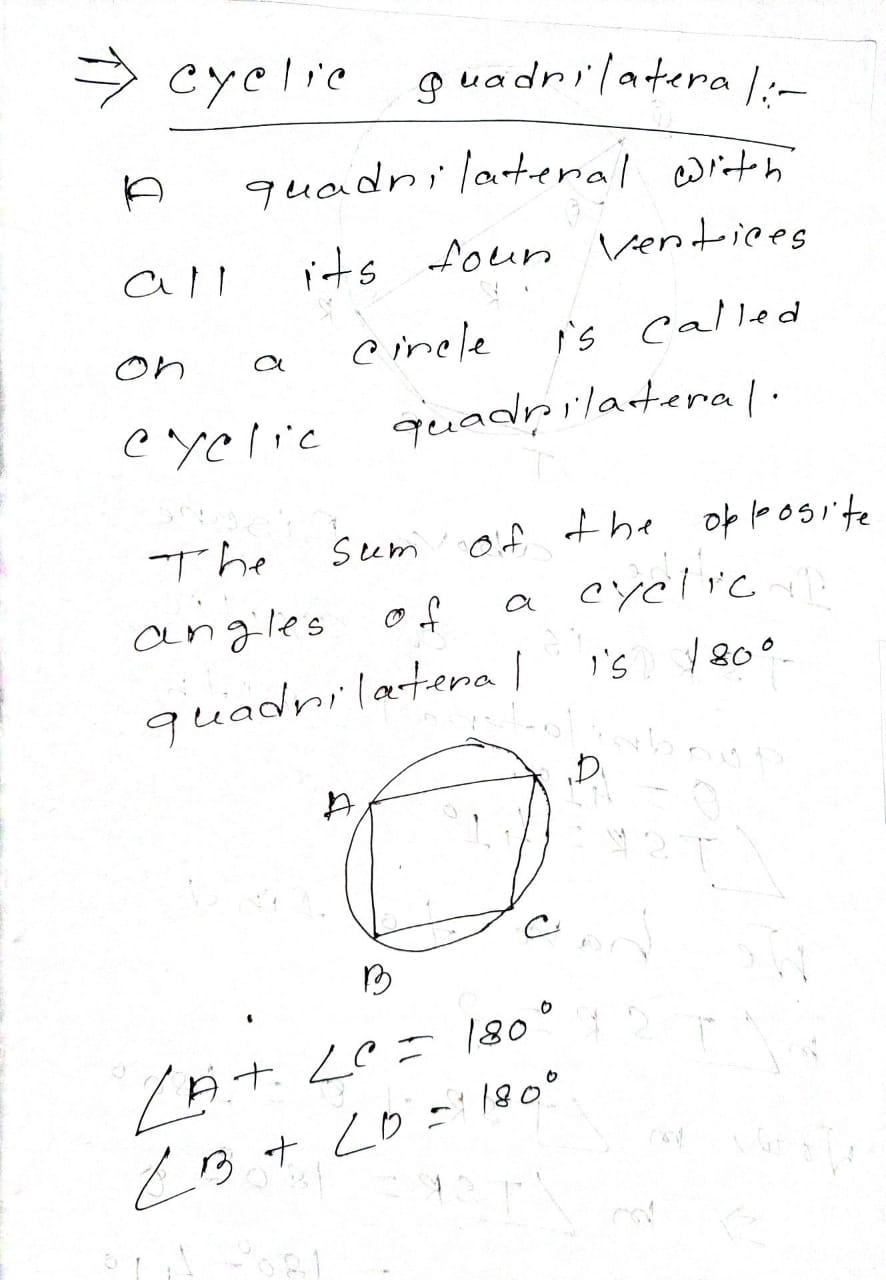 ⇒ cyclic quadrilateral:-
A quadrilateral with
all its four vertices
on a circle is called
cyclic quadrilateral.
The sum of the opposite
angles of a cyclic
quadrilateral is 180°
A D
B C
∠A + ∠C = 180°
∠B + ∠D = 180°